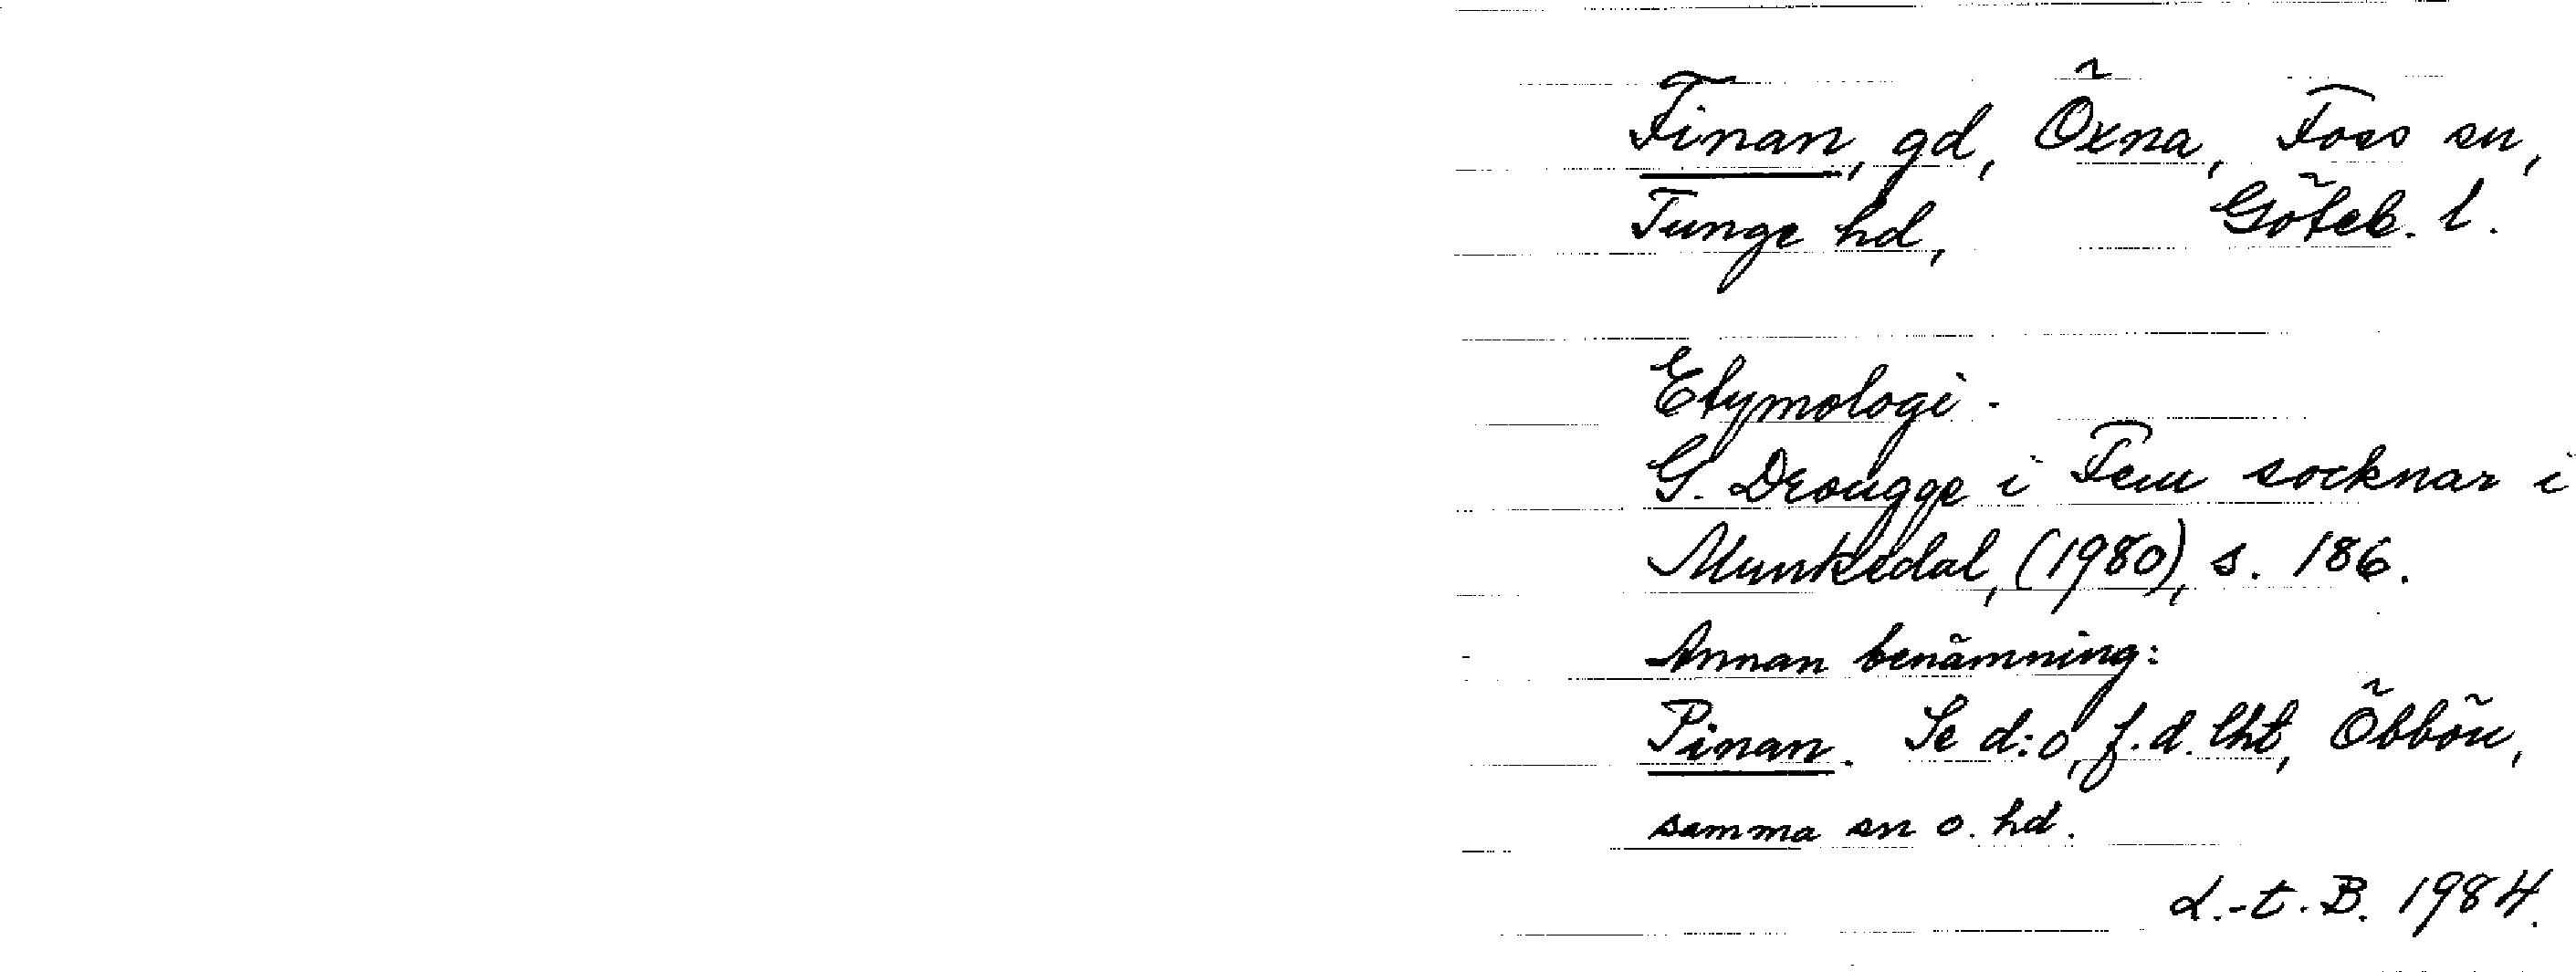 Finan, gd, Öxna, Foss sn,
Tunge hd, Göteb. l.
Etymologi.
G. Drougge i Fem socknar i
Munkedal, (1980), s. 186.
Annan benämning:
Pinan. Se d:o, f.d. lht, Öbbön,
samma sn o. hd.
L.-t. B. 1984.